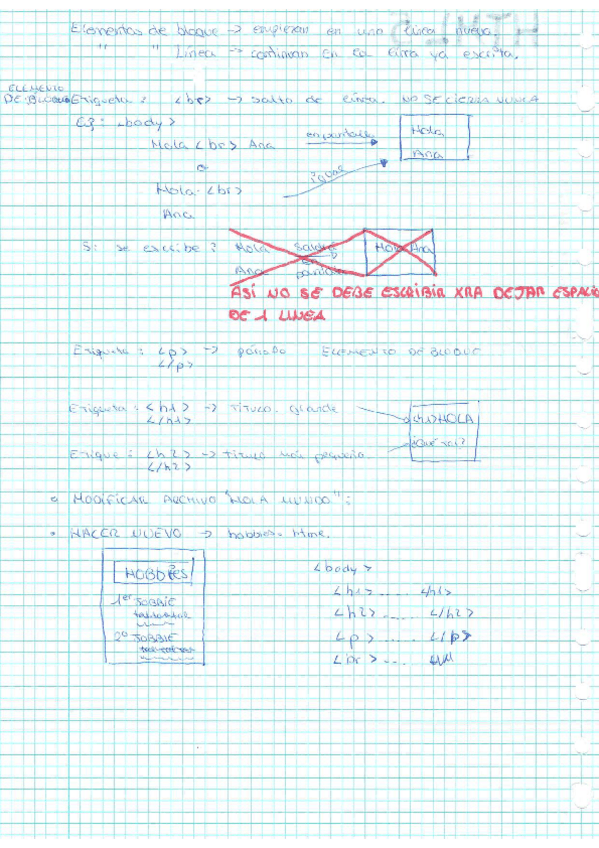 Elementos de bloque -> empiezan en una línea nueva.
" " Línea -> continuan en la línea ya escrita.
ELEMENTO
DE BLOQUE Etiqueta : <br> -> salto de línea. NO SE CIERRA NUNCA
Ej: <body>
Hola <br> Ana en pantalla Hola
Ana
o
Hola <br> igual
Ana
Si se escribe : Hola saldrá Hola Ana
Ana en pantalla
ASÍ NO SE DEBE ESCRIBIR XRA DEJAR ESPACIO
DE 1 LINEA
Etiqueta : <p> -> párrafo ELEMENTO DE BLOQUE
</p>
Etiqueta : <h1> -> Titulo grande <h1> HOLA
</h1>
¿Qué tal?
Etique : <h2> -> titulo más pequeño.
</h2>
• MODIFICAR ARCHIVO "HOLA MUNDO" :
• HACER NUEVO -> hobbies.html.
HOBBIES
1er JOBBIE
2º JOBBIE
<body>
<h1> .... </h1>
<h2> .... </h2>
<p> .... </p>
<br> ....